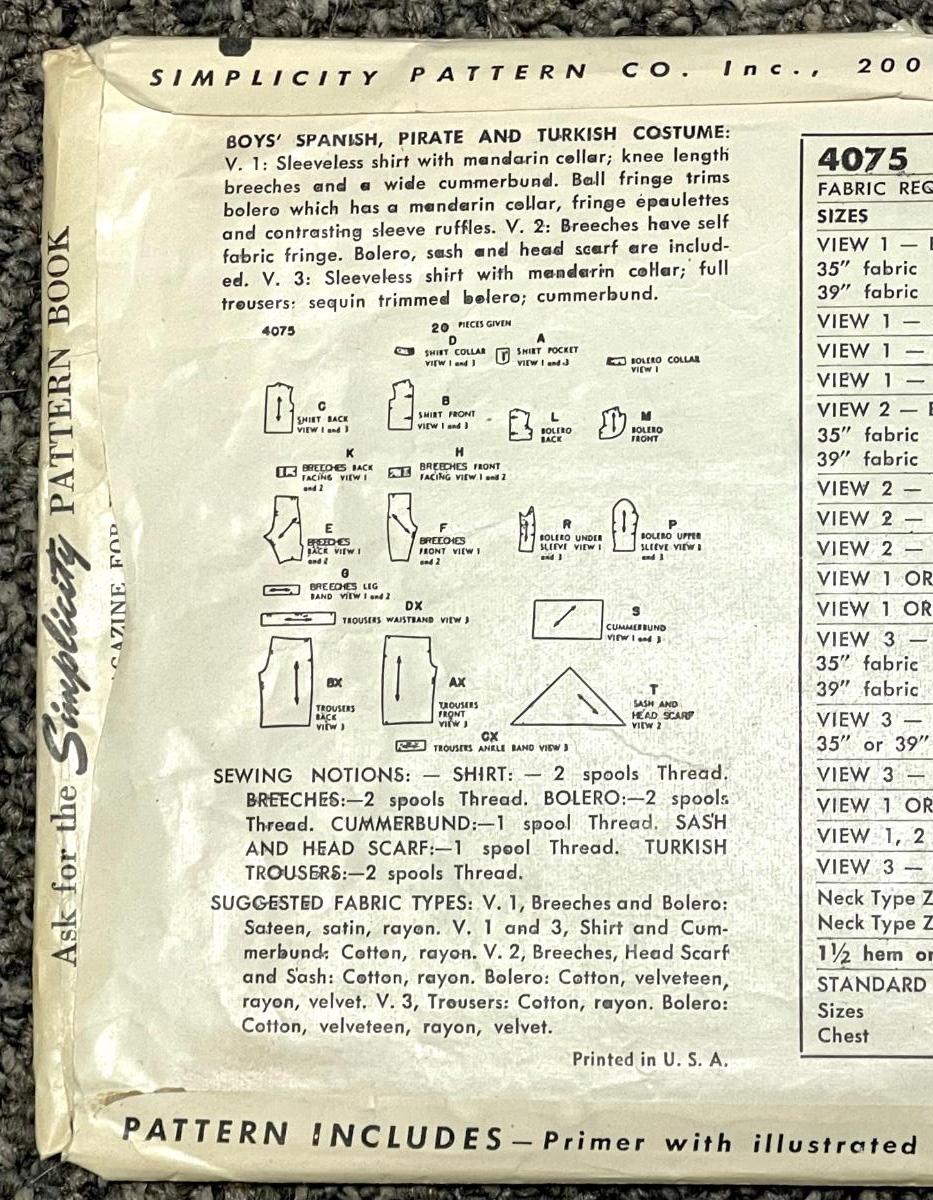 SIMPLICITY PATTERN CO. Inc., 200
BOYS' SPANISH, PIRATE AND TURKISH COSTUME:
V. 1: Sleeveless shirt with mandarin collar; knee length
breeches and a wide cummerbund. Ball fringe trims
bolero which has a mandarin collar, fringe epaulettes
and contrasting sleeve ruffles. V. 2: Breeches have self
fabric fringe. Bolero, sash and head scarf are includ-
ed. V. 3: Sleeveless shirt with mandarin collar; full
trousers: sequin trimmed bolero; cummerbund.
4075
20 PIECES GIVEN
D
SHIRT COLLAR
VIEW 1 and 3
A
SHIRT POCKET
VIEW 1 and 3
BOLERO COLLAR
VIEW 1
C
SHIRT BACK
VIEW 1 and 3
B
SHIRT FRONT
VIEW 1 and 3
L
BOLERO
BACK
M
BOLERO
FRONT
K
BREECHES BACK
FACING VIEW 1
and 2
H
BREECHES FRONT
FACING VIEW 1 and 2
E
BREECHES
BACK VIEW 1
and 2
F
BREECHES
FRONT VIEW 1
and 2
R
BOLERO UNDER
SLEEVE VIEW 1
and 3
P
BOLERO UPPER
SLEEVE VIEW 1
and 3
G
BREECHES LEG
BAND VIEW 1 and 2
DX
TROUSERS WAISTBAND VIEW 3
S
CUMMERBUND
VIEW 1 and 3
BX
TROUSERS
BACK
VIEW 3
AX
TROUSERS
FRONT
VIEW 3
T
SASH AND
HEAD SCARF
VIEW 2
CX
TROUSERS ANKLE BAND VIEW 3
SEWING NOTIONS: — SHIRT: — 2 spools Thread.
BREECHES:—2 spools Thread. BOLERO:—2 spools
Thread. CUMMERBUND:—1 spool Thread. SASH
AND HEAD SCARF:—1 spool Thread. TURKISH
TROUSERS:—2 spools Thread.
SUGGESTED FABRIC TYPES: V. 1, Breeches and Bolero:
Sateen, satin, rayon. V. 1 and 3, Shirt and Cum-
merbund: Cotton, rayon. V. 2, Breeches, Head Scarf
and Sash: Cotton, rayon. Bolero: Cotton, velveteen,
rayon, velvet. V. 3, Trousers: Cotton, rayon. Bolero:
Cotton, velveteen, rayon, velvet.
Printed in U. S. A.
4075
FABRIC REQ
SIZES
VIEW 1 —
35″ fabric
39″ fabric
VIEW 1 —
VIEW 1 —
VIEW 1 —
VIEW 2 —
35″ fabric
39″ fabric
VIEW 2 —
VIEW 2 —
VIEW 2 —
VIEW 1 OR
VIEW 1 OR
VIEW 3 —
35″ fabric
39″ fabric
VIEW 3 —
35″ or 39″
VIEW 3 —
VIEW 1 OR
VIEW 1, 2
VIEW 3 —
Neck Type Z
Neck Type Z
1½ hem or
STANDARD
Sizes
Chest
PATTERN INCLUDES — Primer with illustrated
Ask for the Simplicity PATTERN BOOK
GAZINE FOR